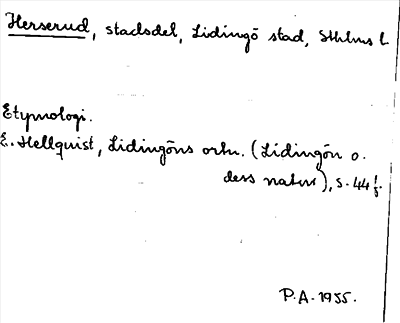 Herserud, stadsdel, Lidingö stad, Sthlms l.
Etymologi.
E. Hellquist, Lidingöns ortn. (Lidingön o.
dess natur), s. 44 f.
P.A. 1955.